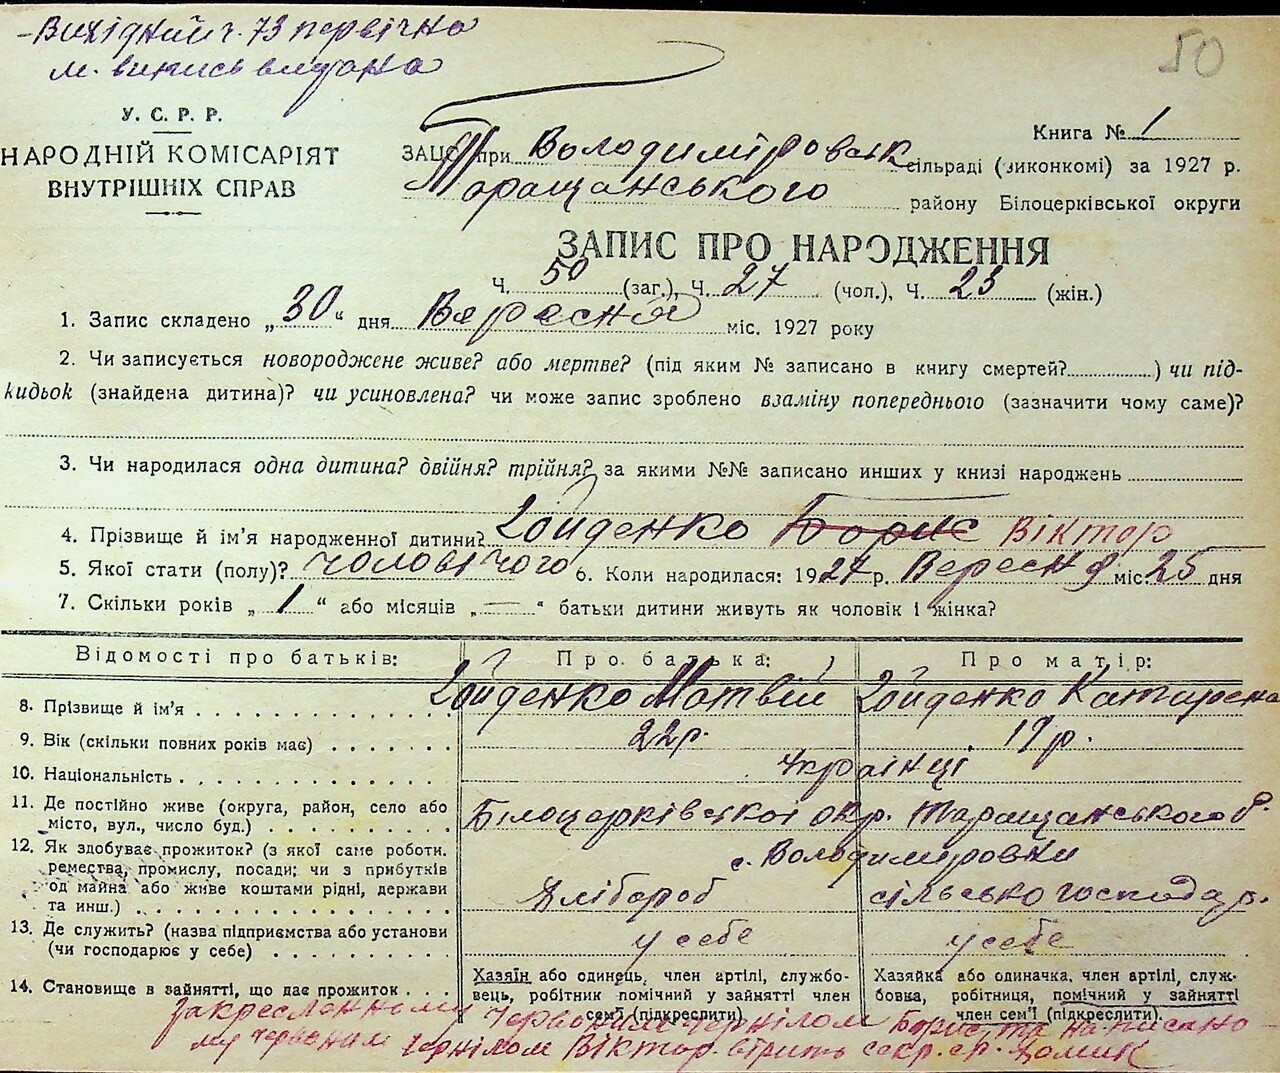 Вихідний ч. 73 первічно
м. випись видана
50
У. С. Р. Р.
НАРОДНІЙ КОМІСАРІЯТ
ВНУТРІШНІХ СПРАВ
Книга № 1
ЗАЦС при Володимировськ сільраді (виконкомі) за 1927 р.
Таращанського району Білоцерківської округи
ЗАПИС ПРО НАРОДЖЕННЯ
Ч. 50 (заг.), Ч. 27 (чол.), Ч. 23 (жін.)
1. Запис складено „30“ дня Вересня міс. 1927 року
2. Чи записується новороджене живе? або мертве? (під яким № записано в книгу смертей?) чи під-
кидьок (знайдена дитина)? чи усиновлена? чи може запис зроблено взаміну попереднього (зазначити чому саме)?
3. Чи народилася одна дитина? двійня? трійня? за якими №№ записано инших у книзі народжень
4. Прізвище й ім'я народженної дитини? Гойденко Борис Віктор
5. Якої стати (полу)? чоловічого 6. Коли народилася: 1927 р. Вересня міс. 25 дня
7. Скільки років „1“ або місяців „—“ батьки дитини живуть як чоловік і жінка?
Відомості про батьків: Про батька: Про матір:
8. Прізвище й ім'я Гойденко Матвій Гойденко Катирена
9. Вік (скільки повних років має) 22 р. 19 р.
10. Національність Українці
11. Де постійно живе (округа, район, село або
місто, вул., число буд.) Білоцерківської окр. Таращанського р.
12. Як здобуває прожиток? (з якої саме роботи, с. Володимировки
ремества, промислу, посади; чи з прибутків
од майна або живе коштами рідні, держави Хлібороб сільсько господар.
та инш.)
13. Де служить? (назва підприємства або установи
(чи господарює у себе) у себе у себе
14. Становище в зайнятті, що дає прожиток
Хазяїн або одинець, член артілі, службо-
вець, робітник помічний у зайнятті член
сем'ї (підкреслити)
Хазяйка або одиначка, член артілі, служ-
бовка, робітниця, помічний у зайнятті
член сем'ї (підкреслити).
Закресленному Червоним чернілом Борис та написано
му червоним чернілом Віктор вірить секр. с.р.